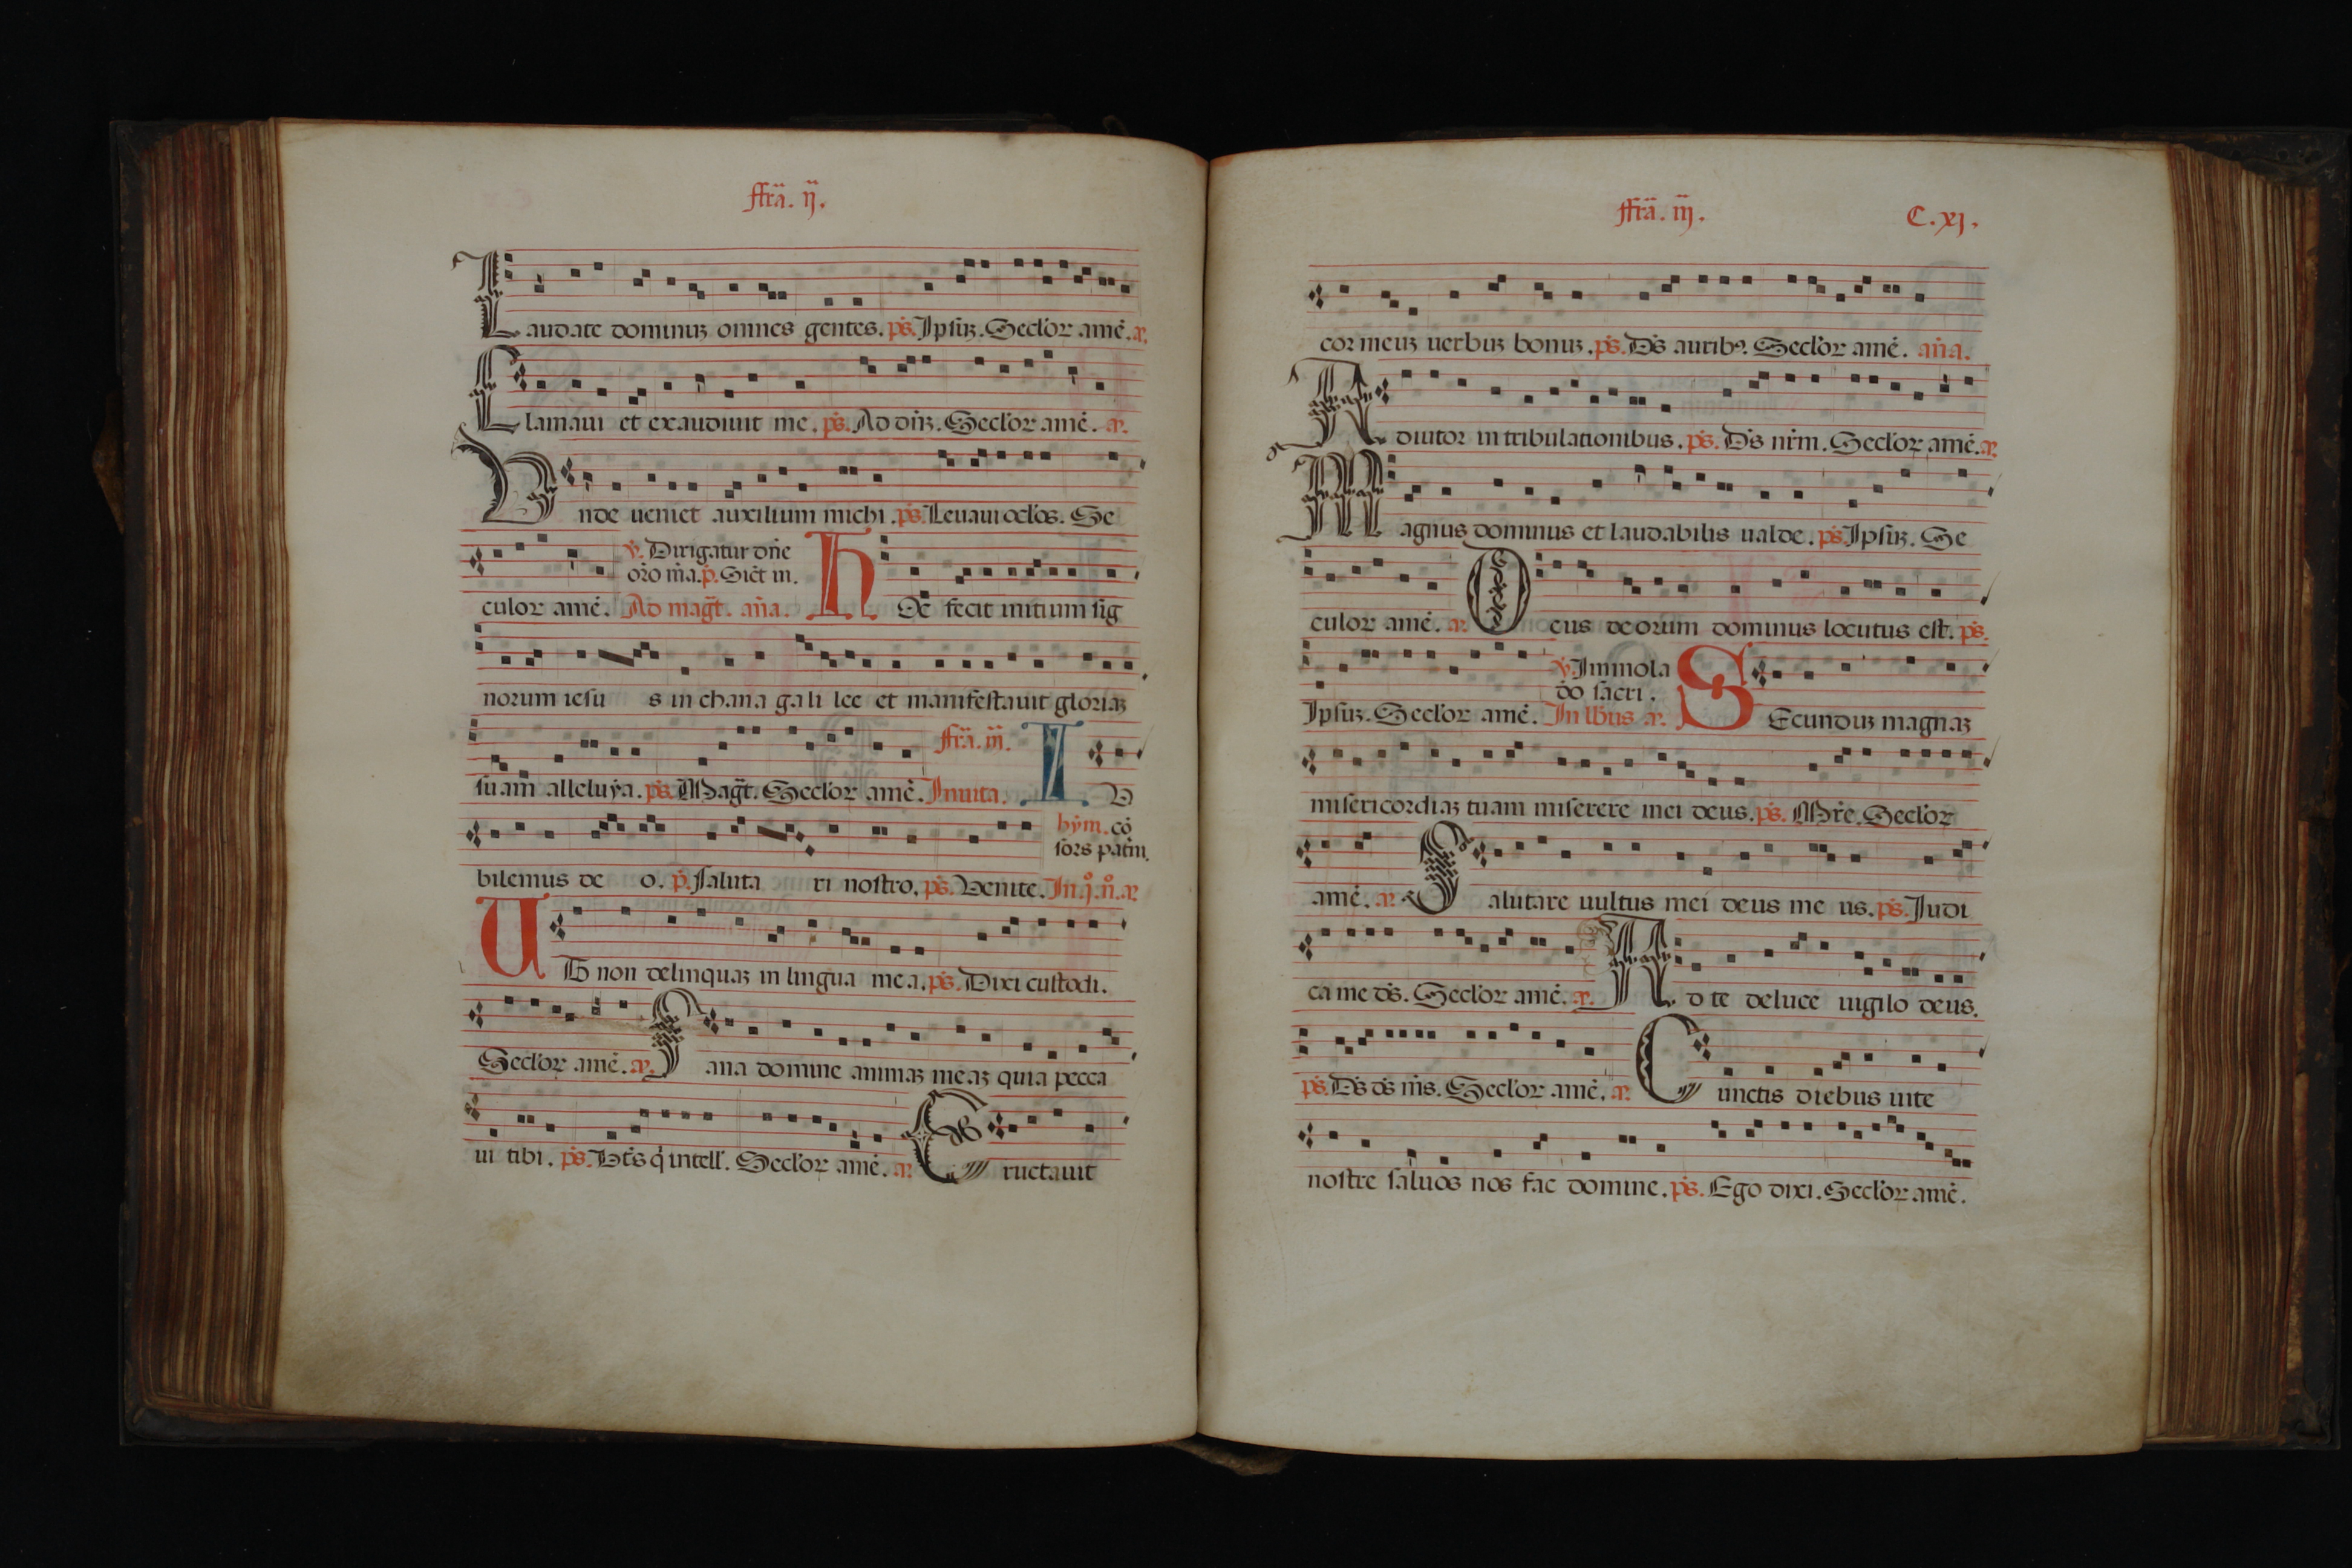 ffra. ij.
Laudate dominuz omnes gentes. ps. Ipsuz. Seclor ame. a.
Clamaui et exaudiuit me. ps. Ad dnz. Seclor ame. a.
Unde ueniet auxilium michi. ps. Leuaui oclos. Se
v. Dirigatur dne
oro ma. p. Sict in.
culor ame. Ad magt. ana. Hoc fecit initium sig
norum iesu s in chana gali lee et manifestauit gloriaz
suam alleluya. ps. Magt. Seclor ame. Inuita. ffra. iij. IU
bilemus de o. p. saluta ri nostro. ps. Uenite. In. j. n. a.
hym. co
sors patni.
UT non delinquaz in lingua mea. ps. Dixi custodi.
Seclor ame. a. Sana domine animaz meaz quia pecca
ui tibi. ps. Bts q intell. Seclor ame. a. Eructauit
ffra. iij. C. xj.
cor meuz uerbuz bonuz. ps. Ds auribꝰ. Seclor ame. ana.
Adiutor in tribulationibus. ps. Ds nrm. Seclor ame. a.
Magnus dominus et laudabilis ualde. ps. Ipsuz. Se
culor ame. a. Deus deorum dominus locutus est. ps.
v. Immola
do sacri.
Ipsuz. Seclor ame. In lbus a. SEcunduz magnaz
misericordiaz tuam miserere mei deus. ps. Mre. Seclor
ame. a. Salutare uultus mei deus me us. ps. Judi
ca me ds. Seclor ame. a. Ad te deluce uigilo deus.
ps. Ds ds ms. Seclor ame. a. Cunctis diebus uite
nostre saluos nos fac domine. ps. Ego dixi. Seclor ame.